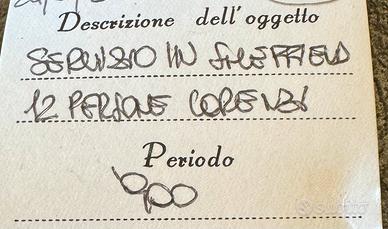 Descrizione dell'oggetto
SERVISIO IN SHEFFIELD
12 PERSONE LORENZI
Periodo
900